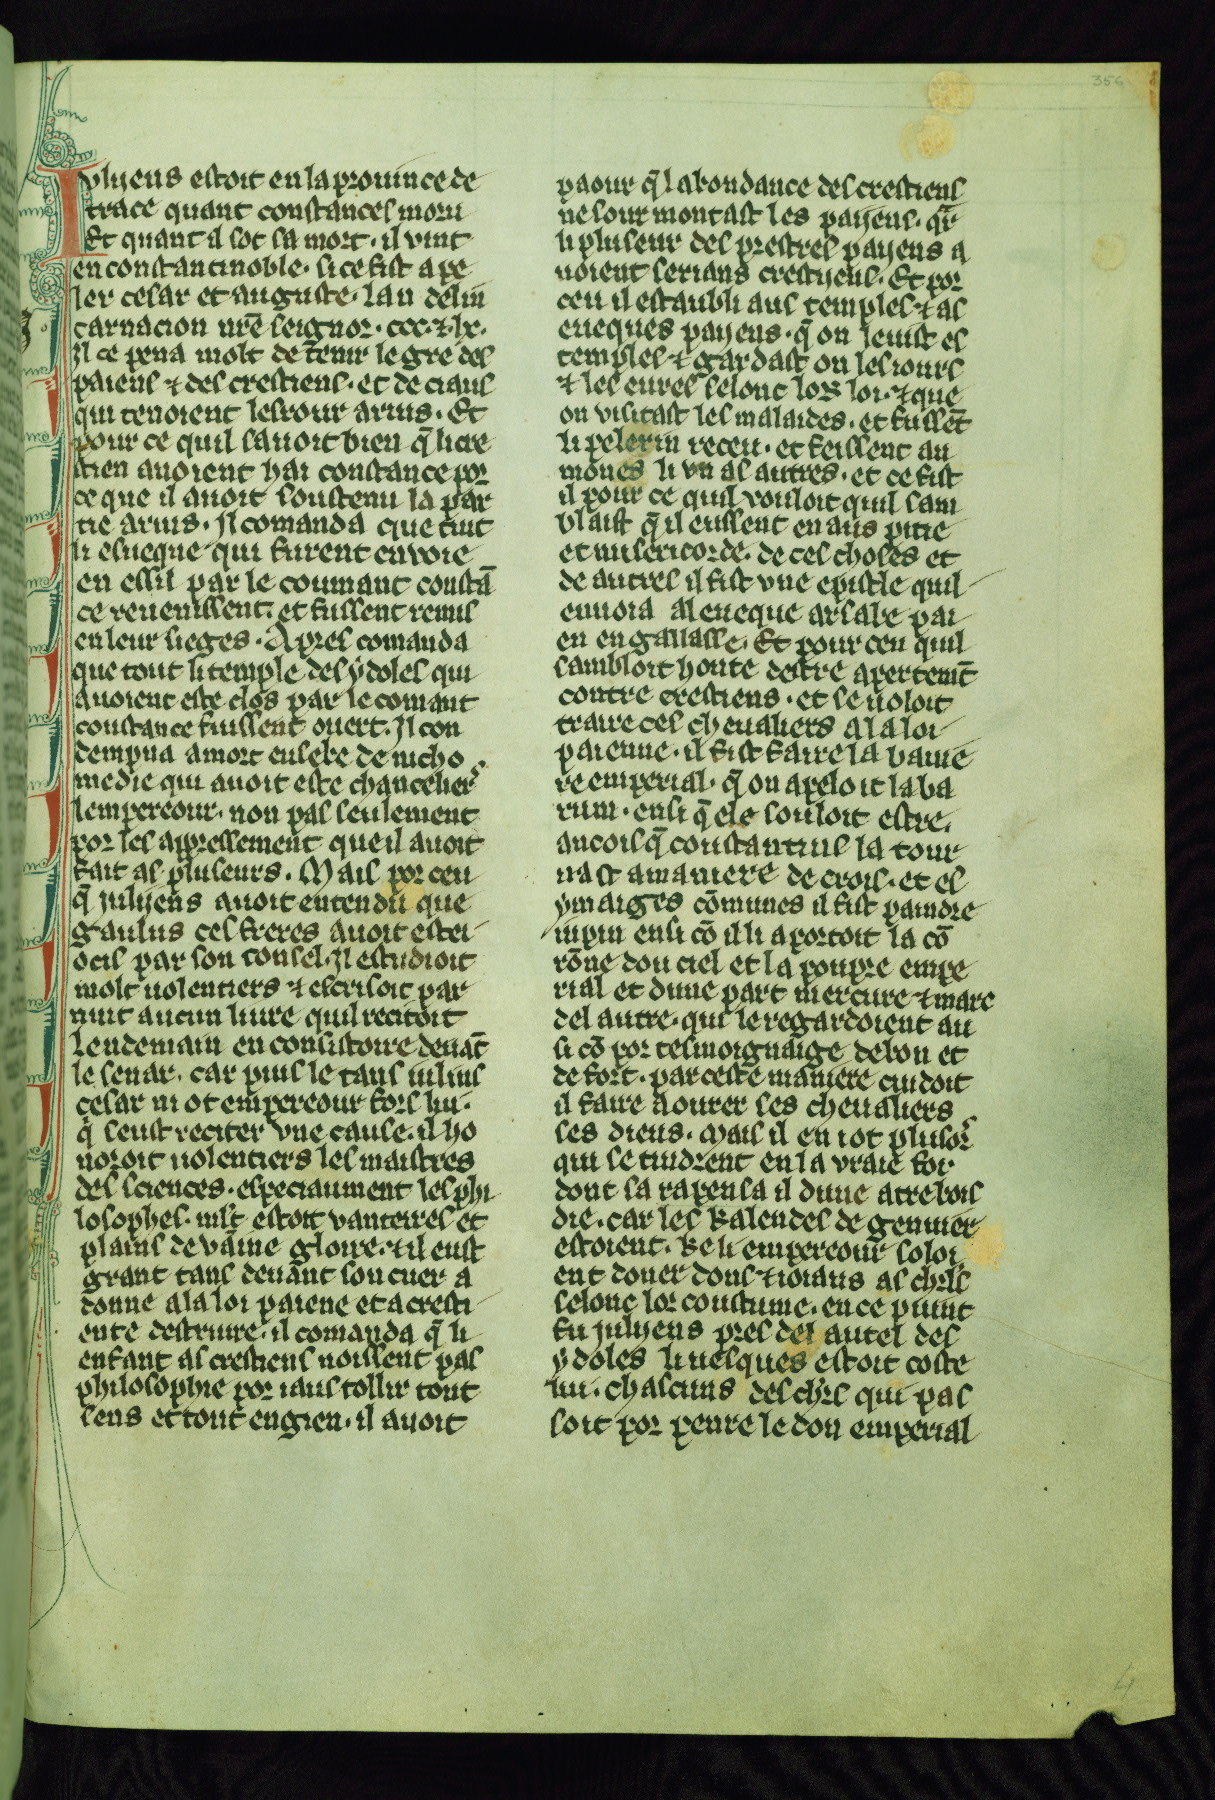 356
Iulyens estoit en la prouince de
trace quant constances moru
Et quant il sot sa mort · il vint
en constantinoble · si ce fist ape
ler cesar et auguste · lan delin
carnacion nr̄e seignor · ccc · ⁊ · lx ·
Il ce pena molt de t̄enir le gre des
paiens ⁊ des crestiens · et de ciaus
qui tenoient lesrour arrius · Et
pour ce quil sauoit bien q̄ li cre
stien auoient hai constance por
ce que il auoit soustenu la par
tie arrius · Il comanda que tuit
li esueque qui furent enuoie
en essil par le coumant constā
ce reuenissent · et fussent remis
en leur sieges · Apres comanda
que tout li temple des ydoles qui
auoient este clos par le comant
constance fuissent ouert · Il con
dempna a mort eusebe de nicho
medie qui auoit este chancelier
lempereour · non pas seulement
por les appressement que il auoit
fait as pluseurs · Mais por ceu
q̄ julyens auoit entendu que
gaulus ces freres auoit estei
ocis par son consel · Il estudioit
molt uolentiers ⁊ escrisoit par
nuit aucun liure quil recitoit
lendemain en consistoire deuāt
le senat · car puis le tans iulius
cesar ni ot empereour fors lui ·
q̄ seust reciter vne cause · il ho
noroit uolentiers les maistres
des sciences · especiaument les phi
losophes · mlt estoit vanterres et
plains de vaine gloire · ⁊ il eust
grant tans deuant son cuer a
donne a la loi paiene et a cresti
ente destruire · il comanda q̄ li
enfant as crestiens noissent pas
philosophie por iaus tollir tout
sens et tout engien · il auoit
paour q̄ labondance des crestiens
ne sour montast les payens · qr̄
li pluseur des prestres payens a
uoient serians crestyens · Et por
ceu il estaubli aus temples ⁊ as
eueques payens · q̄ on leuist es
temples ⁊ gardast on les iours
⁊ les eures selonc lor loi · ⁊ que
on visitast les malaides · et fussēt
li pelerin receu · et feissent au
mones li vn as autres · et ce fist
il pour ce quil vouloit quil sam
blaist q̄ il eussent en aus pitie
et misericorde · de ces choses et
de autres il fist vne epistle quil
enuoia al eueque arsabe pai
en en gallasse · Et pour ceu quil
sambloit honte destre apertemt̄
contre crestiens · et se uoloit
traire ces cheualiers a la loi
paienne · il fist faire la banie
re emperial · q̄ on apeloit laba
rum · ensi q̄ ele souloit estre ·
ancois q̄ constantins la tour
nast a maniere de crois · et es
ymaiges cōmunes il fist paindre
iupin ensi cō il li aportoit la co
rōne dou ciel et la poupre empe
rial et dune part mercure ⁊ mars
del autre · qui le regardoient au
si cō por tesmoignaige de bon et
de fort · par ceste maniere cuidoit
il faire aourer ses cheualiers
ses dieus · Mais il en i ot plusor̄s
qui se tindrent en la vraie foi
dont sa rapensa il dune atre bois
die · car les Kalendes de genuier
estoient · Ke li empereour soloi
ent doner dons ⁊ ioiaus as chr̄ls
selonc lor coustume · en ce point
fu julyens pres del autel des
ydoles li uesques estoit coste
lui · chascuns des chr̄s qui pas
soit por penre le don emperial
4